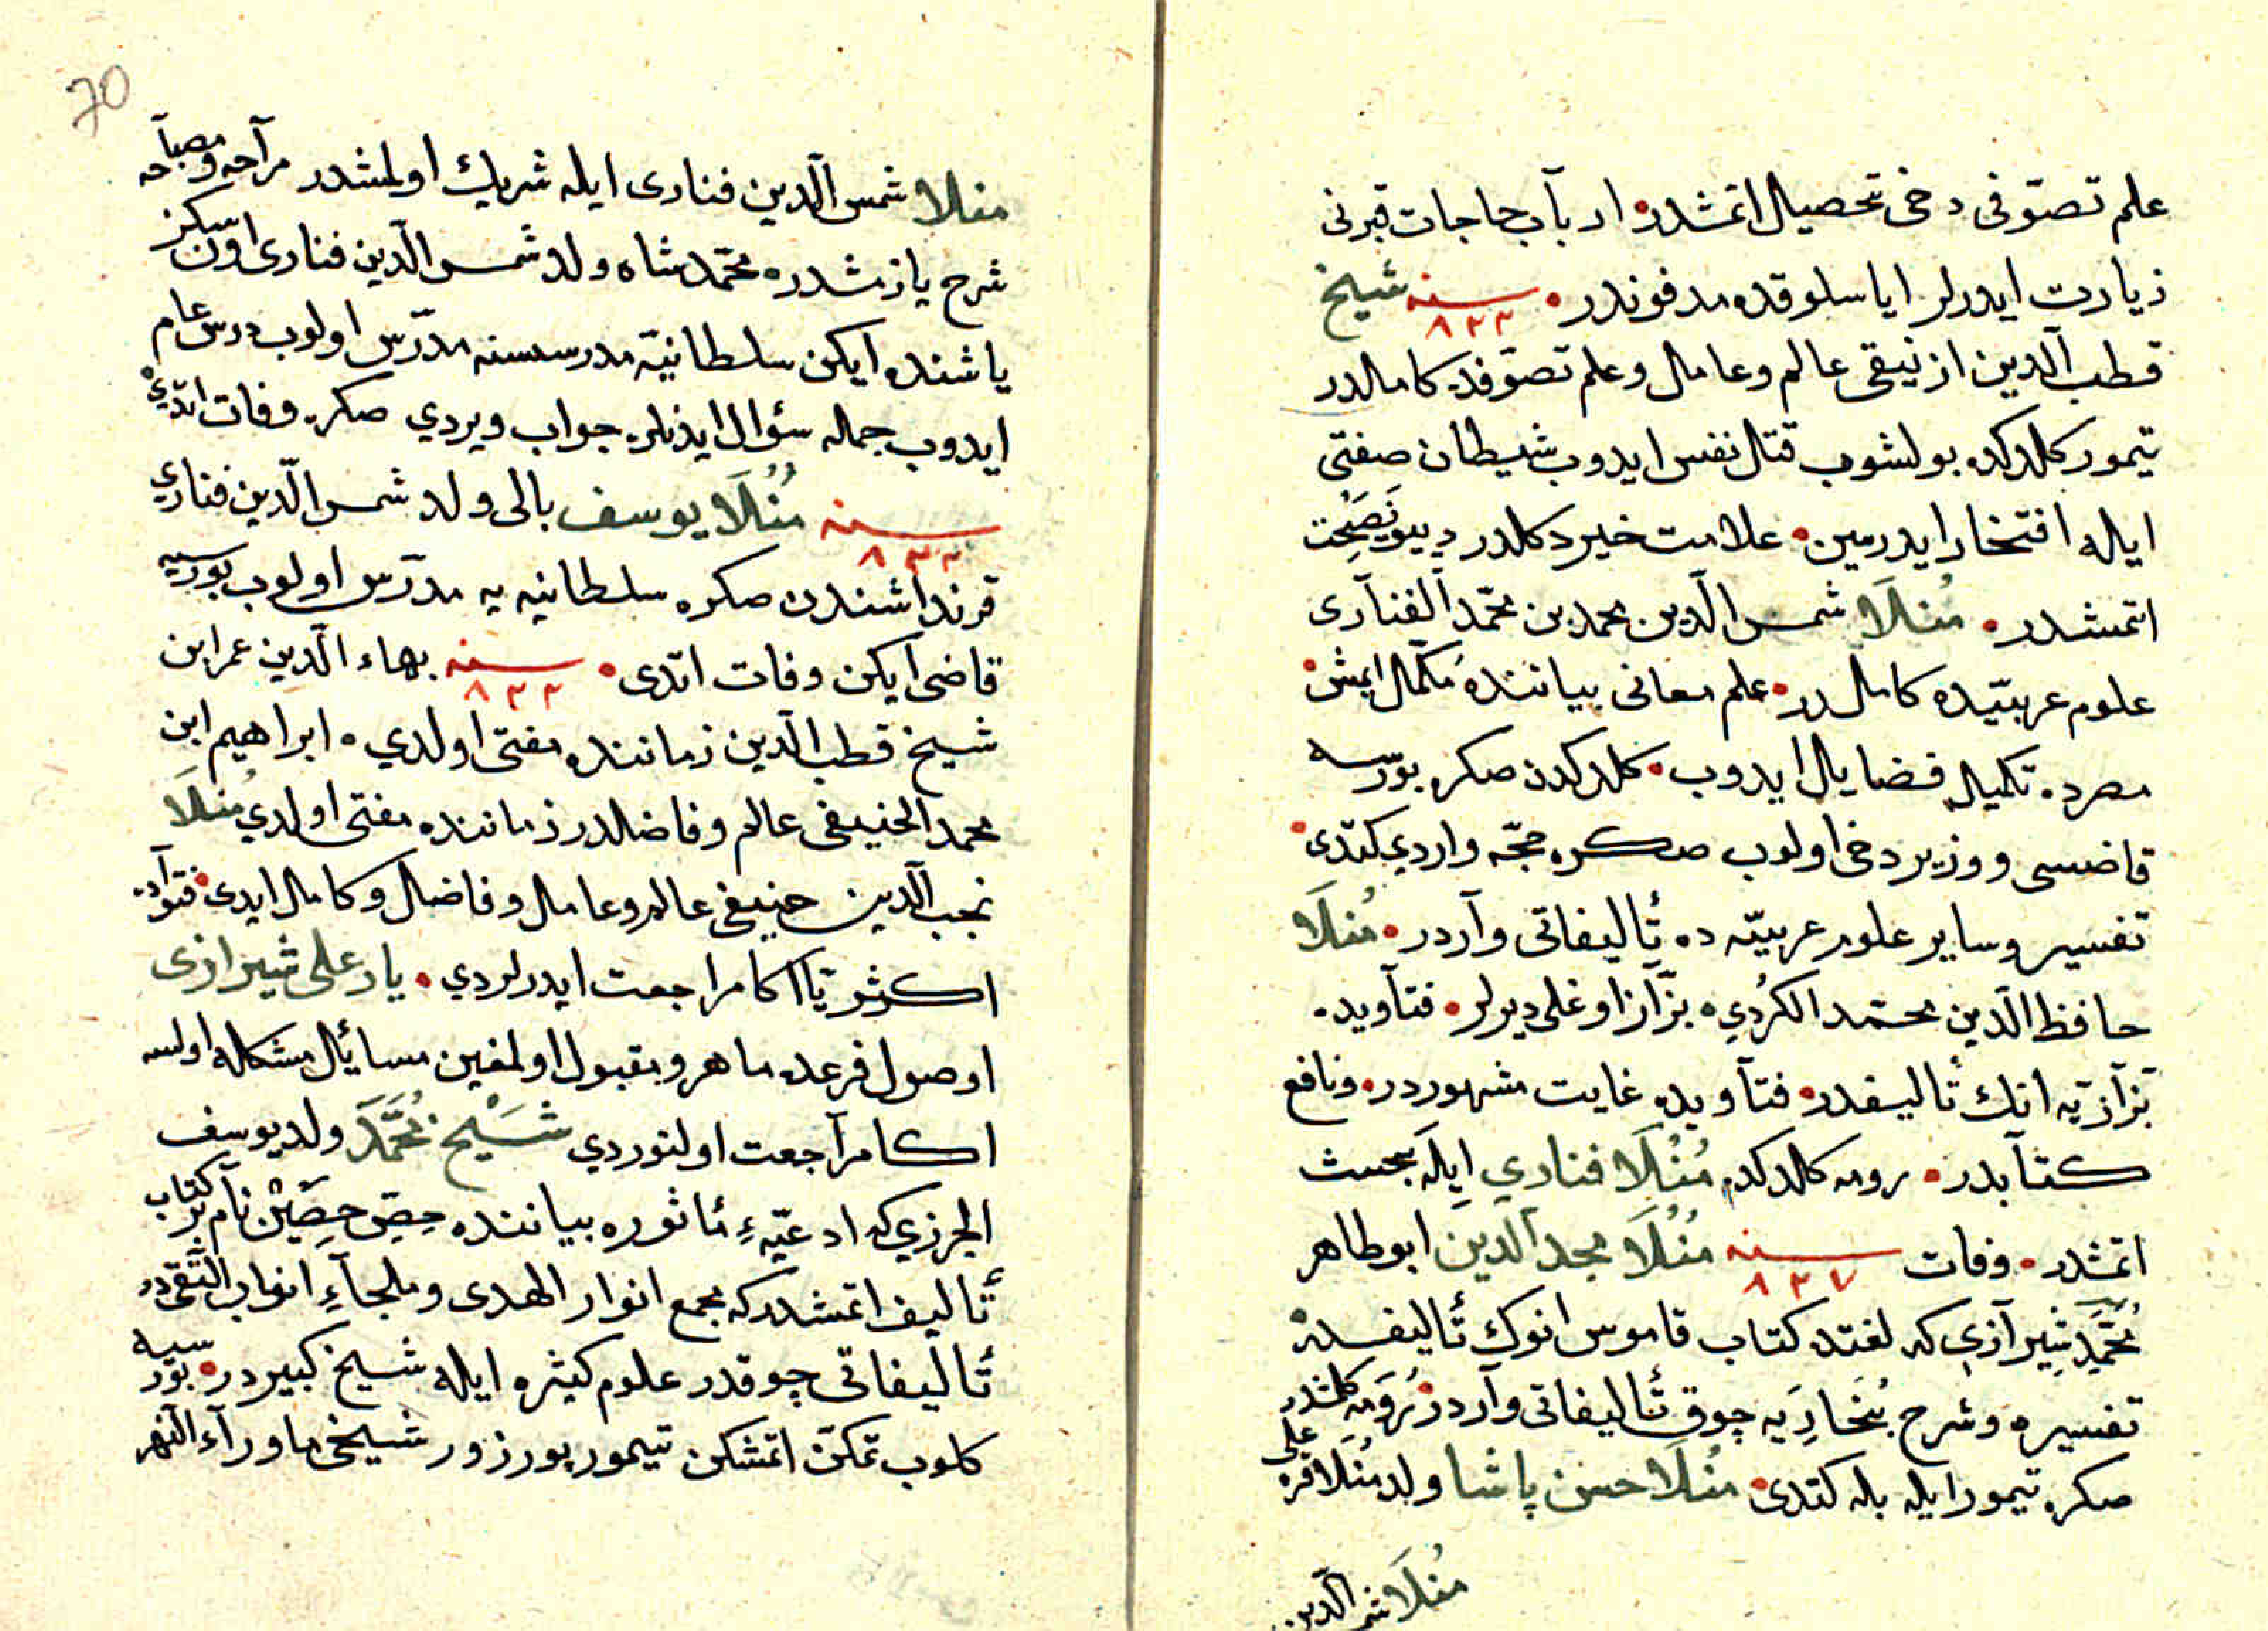 علم تصوّفى دخى تحصيل اتمشدر• ارباب حاجات قبرنى
زيارت ايدرلر اياسلوقده مدفوندر• سنه ٨٢٢ شيخ
قطب الدين ازنيقى عالم وعامل وعلم تصوّفده كاملدر
تيمور كلدكده بولشوب قتل نفس ايدوب شيطان صفتى
ايله افتخار ايدرسين• علامت خير دكلدر ديو نصيحت
اتمشدر• مُنلَا شمس الدين محمد بن محمّد الفنآرى
علوم عربيّده كاملدر• علم معانى بياننده مُكمّل ايمش•
مصرده تكميل فضايل ايدوب• كلدكدن صكره بورسه
قاضسى ووزير دخى اولوب صكره حجّه واردي كتدى•
تفسير وساير علوم عربيّه ده تأليفاتى وآردر• مُنلَا
حافظ الدين محمّد الكُردِي• بزّآز اوغلى ديرلر• فتآويده
بزآزيّه انك تأليفدر• فتآويده غايت مشهوردر• ونافع
كتآبدر• رومه كلدكده مُنْلَا فناري ايله بحث
اتمشدر• وفات سنه ٨٢٧ مُنْلَا مجد الدين ابوطاهر
مُحَمَّد شيرآزي كه لغتده كتاب قاموس انوك تأليفدر•
تفسيره وشرح بُخارِيَه چوق تأليفاتى وآردر• رُومَه كلمشدر
صكره تيمور ايله بله كتدى• مُنلَا حسن پاشا ولد مُنلَا قره على
مُنلَا شمس الدين
70
منلا شمس الدين فنارى ايله شريك اولمشدر مرآحه ومصبآحه
شرح يازمشدر• محمّد شاه ولد شمس الدين فنارى اون سكز
ياشنده ايكن سلطانيّه مدرسسنه مدرّس اولوب درس عام
ايدوب جمله سؤال ايدنلره جواب ويردي صكره وفات اتدي•
سنه ٨٣٢ مُنْلَا يوسف بالى ولد شمس الدين فناري
قرنداشندن صكره سلطانيه يه مدرّس اولوب بورسيه
قاضى ايكن وفات اتدى• سنه ٨٢٢ بهاء الدين عمر ابن
شيخ قطب الدين زماننده مفتى اولدي• ابراهيم ابن
محمد الحنيفى عالم وفاضلدر زماننده مفتى اولدي مُنلَا
نجب الدين حنيفى عالم وعامل وفاضل وكامل ايدى• فتوآده
اكثريّا اكا مراجعت ايدرلردي• يار على شيرازى
اوصول فرعده ماهر ومقبول اولمغين مسائل مشكله اولسه
اكا مرآجعت اولنوردي شَيْخ مُحَمَّد ولد يوسف
الجرزي كه ادعيّهءِ مأثوره بياننده حِصن حصين نام بر كتاب
تأليف اتمشدر كه مجمع انوار الهدى وملجآءِ ابواب التّقى در
تأليفاتى چوقدر علوم كثيره ايله شيخ كبيردر• بورسيه
كلوب تمكّن اتمشكن تيمور پور زور شيخى ماورآء النهر